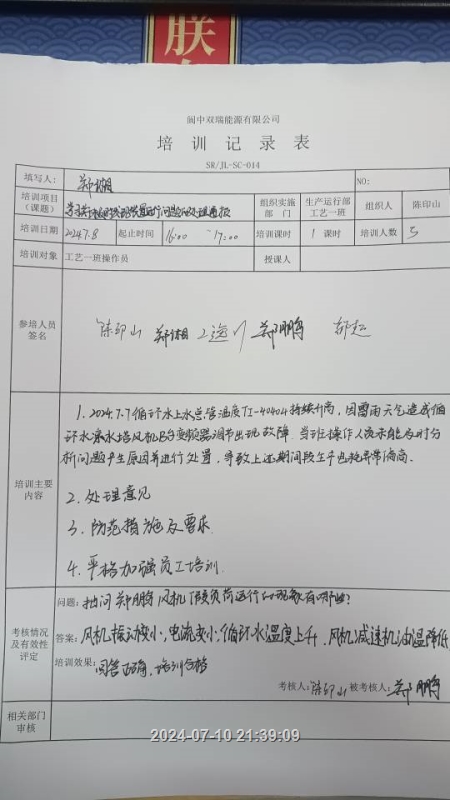 朕
阆中双瑞能源有限公司
培训记录表
SR/JL-SC-014
填写人： 郑翊 NO:
培训项目（课题） 组织实施部门 生产运行部工艺一班 组织人 陈印山
培训日期 2024.7.8 起止时间 16:00 ~17:00 培训课时 1 课时 培训人数 5
培训对象 工艺一班操作员 授课人
参培人员签名 陈印山 郑翊 郑鹏 郝起
培训主要内容
1.2024.7.7循环水上水总管温度TI-40404持续升高，因雷雨天气造成循
环水凉水塔风机B台变频器调节出现故障，当班操作人员未能及时分
析问题产生原因并进行处置，导致上述期间段生产电耗异常偏高。
2.处理意见
3.防范措施及要求
4.严格加强员工培训
考核情况及有效性评定
问题：抽问郑鹏风机假负荷运行的现象有哪些？
答案：风机振动变小，电流变小，循环水温度上升，风机减速机油温降低
培训效果：回答正确，培训合格
考核人：陈印山 被考核人：郑鹏
相关部门审核
2024-07-10 21:39:09